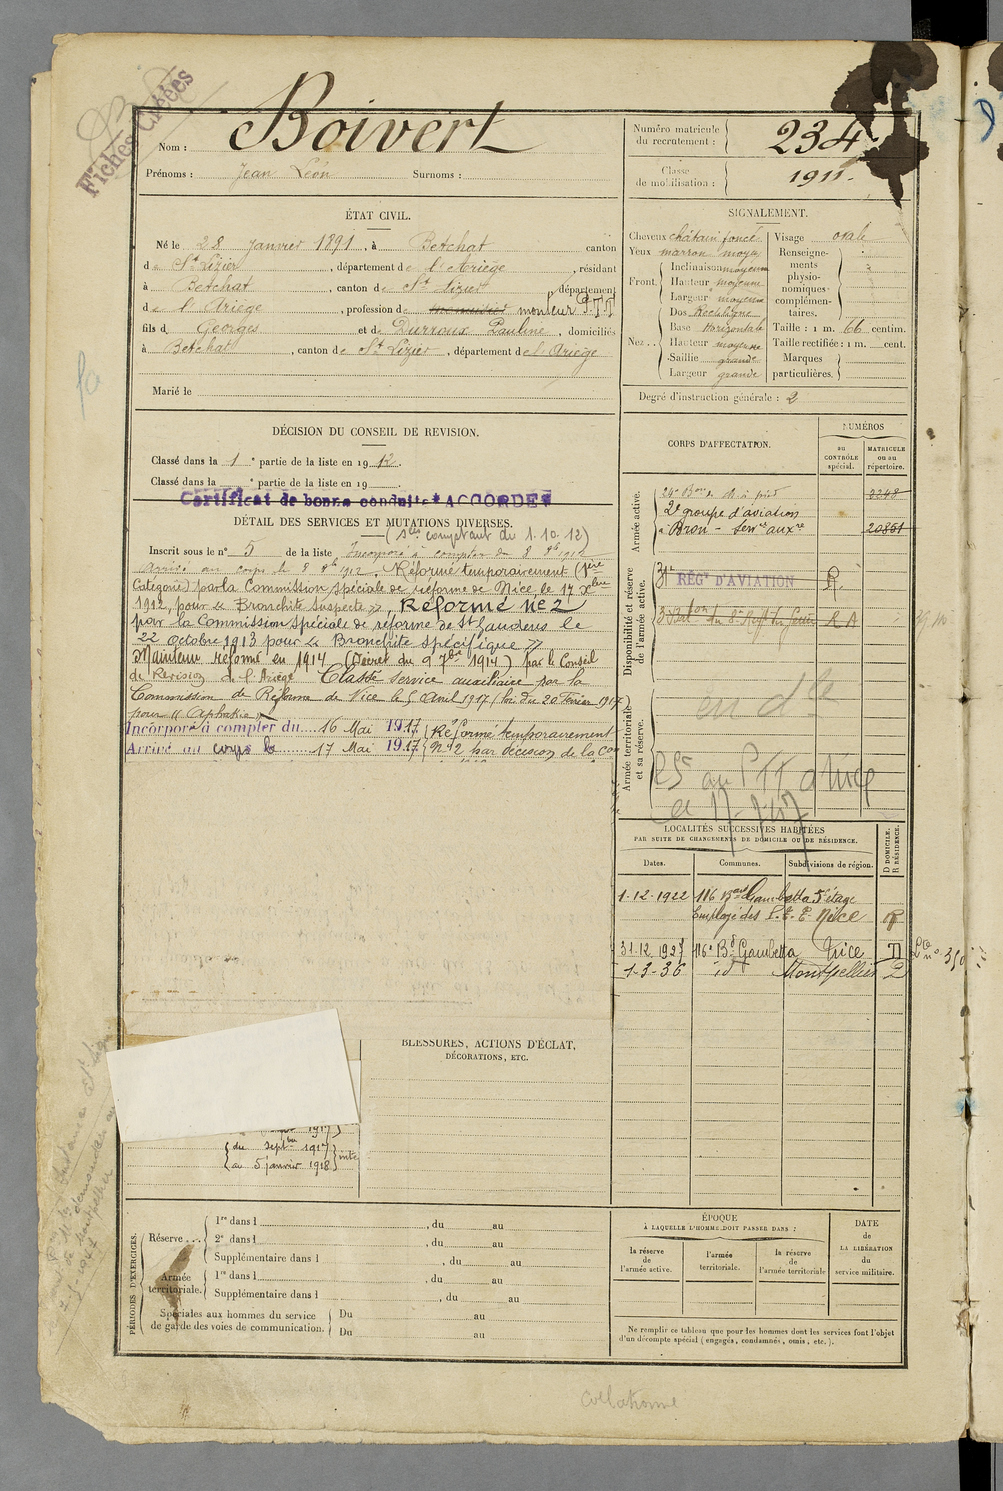 Fiches Créées
Nom : Boivert
Prénoms : Jean Léon Surnoms :
Numéro matricule du recrutement : 234
Classe de mobilisation : 1911.
ÉTAT CIVIL.
Né le 28 janvier 1891, à Betchat canton
de St Lizier, département de l'Ariège, résidant
à Betchat, canton de St Lizier département
de l'Ariège, profession de menuisier monteur P.T.T
fils de Georges et de Durroux Pauline, domiciliés
à Betchat, canton de St Lizier, département de l'Ariège
Marié le
SIGNALEMENT.
Cheveux châtain foncé
Yeux marron moyen
Front. Inclinaison moyenne
Hauteur moyenne
Largeur moyenne
Nez.. Dos Rectiligne
Base Horizontale
Hauteur moyenne
Saillie grande
Largeur grande
Visage ovale
Renseignements physionomiques complémentaires.
Taille : 1 m. 66 centim.
Taille rectifiée : 1 m. cent.
Marques particulières.
Degré d'instruction générale : 2
DÉCISION DU CONSEIL DE REVISION.
Classé dans la 1e partie de la liste en 1912.
Classé dans la e partie de la liste en 19
Certificat de bonne conduite * ACCORDE *
DÉTAIL DES SERVICES ET MUTATIONS DIVERSES.
(Ses comptant du 1.10.12)
Inscrit sous le n° 5 de la liste Incorporé à compter du 8 8bre 1912
Arrivé au corps le 8 8bre 1912. Réformé temporairement (1ère
Catégorie) par la Commission spéciale de réforme de Nice le 17 Xbre
1912, pour « Bronchite suspecte », Réformé n° 2
par la Commission spéciale de réforme de St Gaudens le
22 octobre 1913 pour « Bronchite spécifique »
Maintenu réformé en 1914 (Décret du 9 7bre 1914) par le Conseil
de Révision de l'Ariège Classé service auxiliaire par la
Commission de Réforme de Nice le 5 Avril 1917 (loi du 20 Février 1917)
pour
Incorporé à compter du 16 Mai 1917 (Réformé temporairement
Arrivé au corps le 17 Mai 1917 (N° 2 par décision de la Co
CORPS D'AFFECTATION.
NUMÉROS
au CONTRÔLE spécial.
MATRICULE ou au répertoire.
Armée active.
24e Bon de ch. à pied 3348
2e groupe d'aviation
à Bron - Servce auxre 20851
Disponibilité et réserve de l'armée active.
REGt D'AVIATION R
R A
Armée territoriale et sa réserve.
LOCALITÉS SUCCESSIVES HABITÉES
PAR SUITE DE CHANGEMENTS DE DOMICILE OU DE RÉSIDENCE.
Dates. Communes. Subdivisions de région. D DOMICILE. R RÉSIDENCE.
1-12-1922 116 Bard Gambetta 5e étage
Employé des P.T.T. Nice R
31.12.1927 116 Bd Gambetta Nice D
1-3-36 id Montpellier
BLESSURES, ACTIONS D'ÉCLAT,
DÉCORATIONS, ETC.
1917
du septbre 1917
au 5 janvier 1918 inte
PÉRIODES D'EXERCICES.
Réserve... 1re dans l , du au
2e dans l , du au
Supplémentaire dans l , du au
Armée territoriale. 1re dans l , du au
Supplémentaire dans l , du au
Spéciales aux hommes du service de garde des voies de communication. Du au
Du au
ÉPOQUE
À LAQUELLE L'HOMME DOIT PASSER DANS :
la réserve de l'armée active.
l'armée territoriale.
la réserve de l'armée territoriale
DATE
de
LA LIBÉRATION
du
service militaire.
Ne remplir ce tableau que pour les hommes dont les services font l'objet
d'un décompte spécial (engagés, condamnés, omis, etc.).
collationné